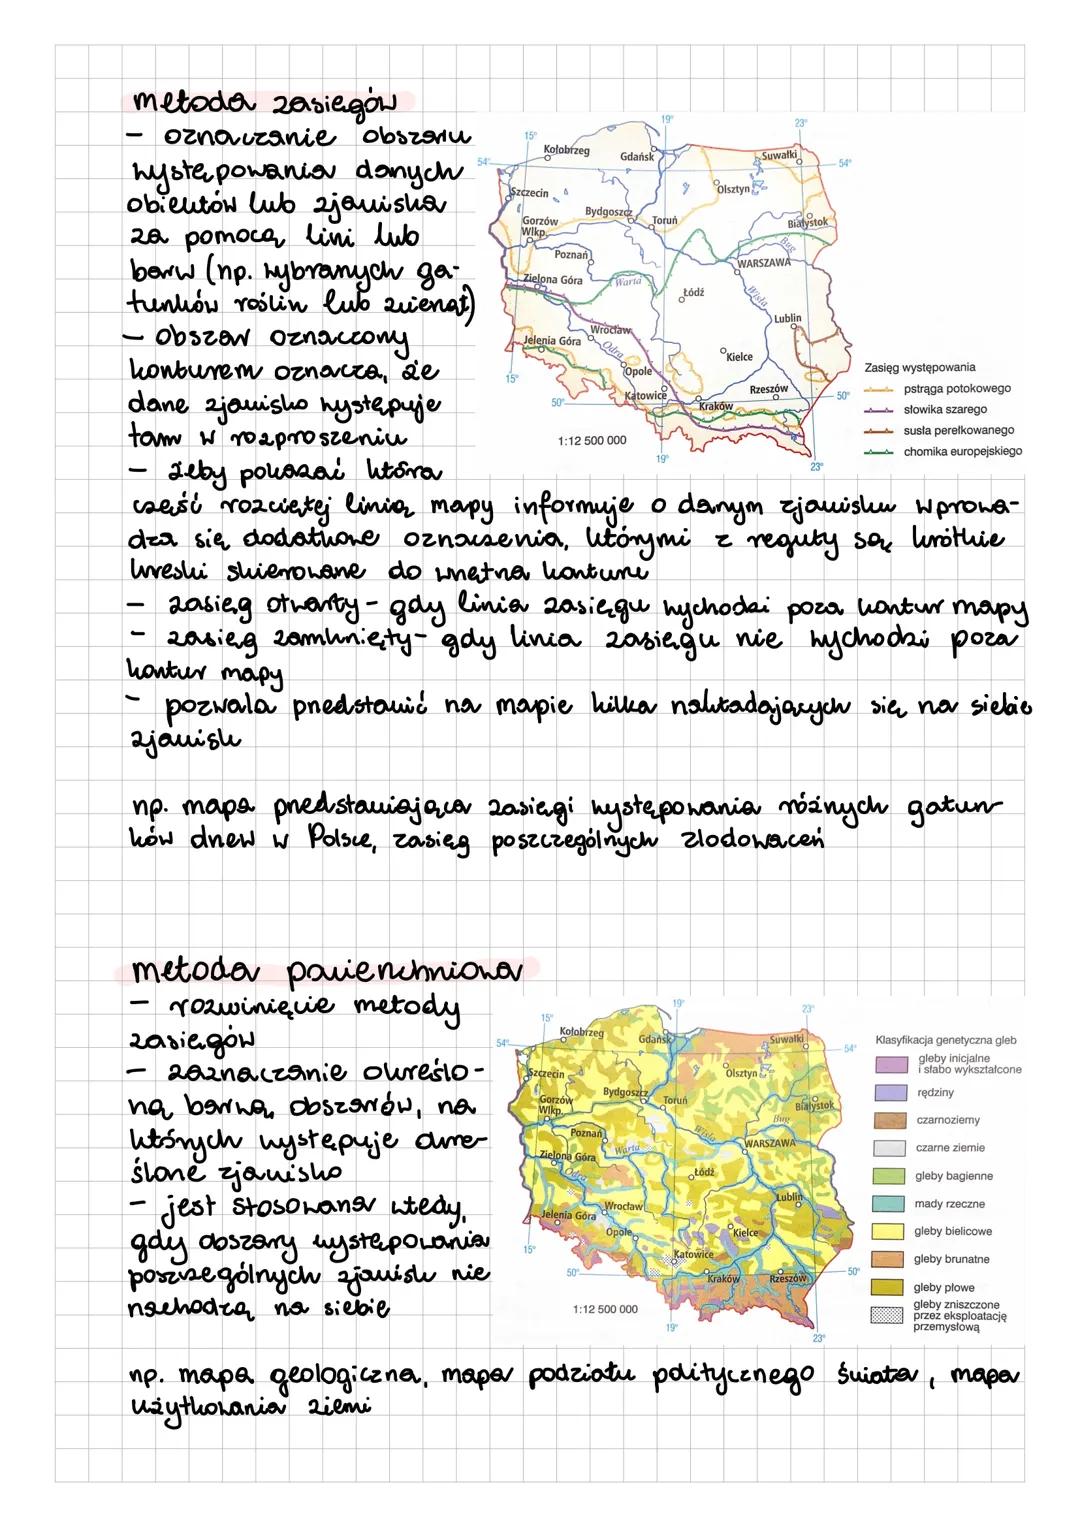 metoda zasięgów
- oznaczanie obszaru
występowania danych
obiektów lub zjawiska
za pomocą lini lub
barw (np. wybranych ga-
tunków roślin lub zwierząt)
- obszar oznaczony
konturem oznacza, że
dane zjawisko występuje
tam w rozproszeniu
- żeby pokazać która
część rozciętej linią mapy informuje o danym zjawisku wprowa-
dza się dodatkowe oznaczenia, którymi z reguły są krótkie
kreski skierowane do wnętrza konturu
- zasięg otwarty - gdy linia zasięgu wychodzi poza kontur mapy
- zasięg zamknięty - gdy linia zasięgu nie wychodzi poza
kontur mapy
- pozwala przedstawić na mapie kilka nakładających się na siebie
zjawisk
np. mapa przedstawiająca zasięgi występowania różnych gatun-
ków drzew w Polsce, zasięg poszczególnych zlodowaceń
15° 19° 23°
54° 54°
Kołobrzeg
Gdańsk
Suwałki
Szczecin
Olsztyn
Gorzów
Wlkp.
Bydgoszcz
Toruń
Białystok
Poznań
Bug
WARSZAWA
Zielona Góra
Warta
Łódź
Wisła
Lublin
Wrocław
Jelenia Góra
Odra
Kielce
Opole
Katowice
Rzeszów
Kraków
15°
50° 50°
19° 23°
1:12 500 000
Zasięg występowania
pstrąga potokowego
słowika szarego
susła perełkowanego
chomika europejskiego
metoda powierzchniowa
- rozwinięcie metody
zasięgów
- zaznaczanie określo-
ną barwą obszarów, na
których występuje okre-
ślone zjawisko
- jest stosowana wtedy,
gdy obszary występowania
poszczególnych zjawisk nie
nachodzą na siebie
np. mapa geologiczna, mapa podziału politycznego świata, mapa
użytkowania ziemi
15° 19° 23°
54° 54°
Kołobrzeg
Gdańsk
Suwałki
Szczecin
Olsztyn
Gorzów
Wlkp.
Bydgoszcz
Toruń
Białystok
Poznań
Wisła
Bug
WARSZAWA
Zielona Góra
Warta
Odra
Łódź
Lublin
Wrocław
Jelenia Góra
Opole
Kielce
Katowice
Kraków
Rzeszów
15°
50° 50°
19° 23°
1:12 500 000
Klasyfikacja genetyczna gleb
gleby inicjalne
i słabo wykształcone
rędziny
czarnoziemy
czarne ziemie
gleby bagienne
mady rzeczne
gleby bielicowe
gleby brunatne
gleby płowe
gleby zniszczone
przez eksploatację
przemysłową